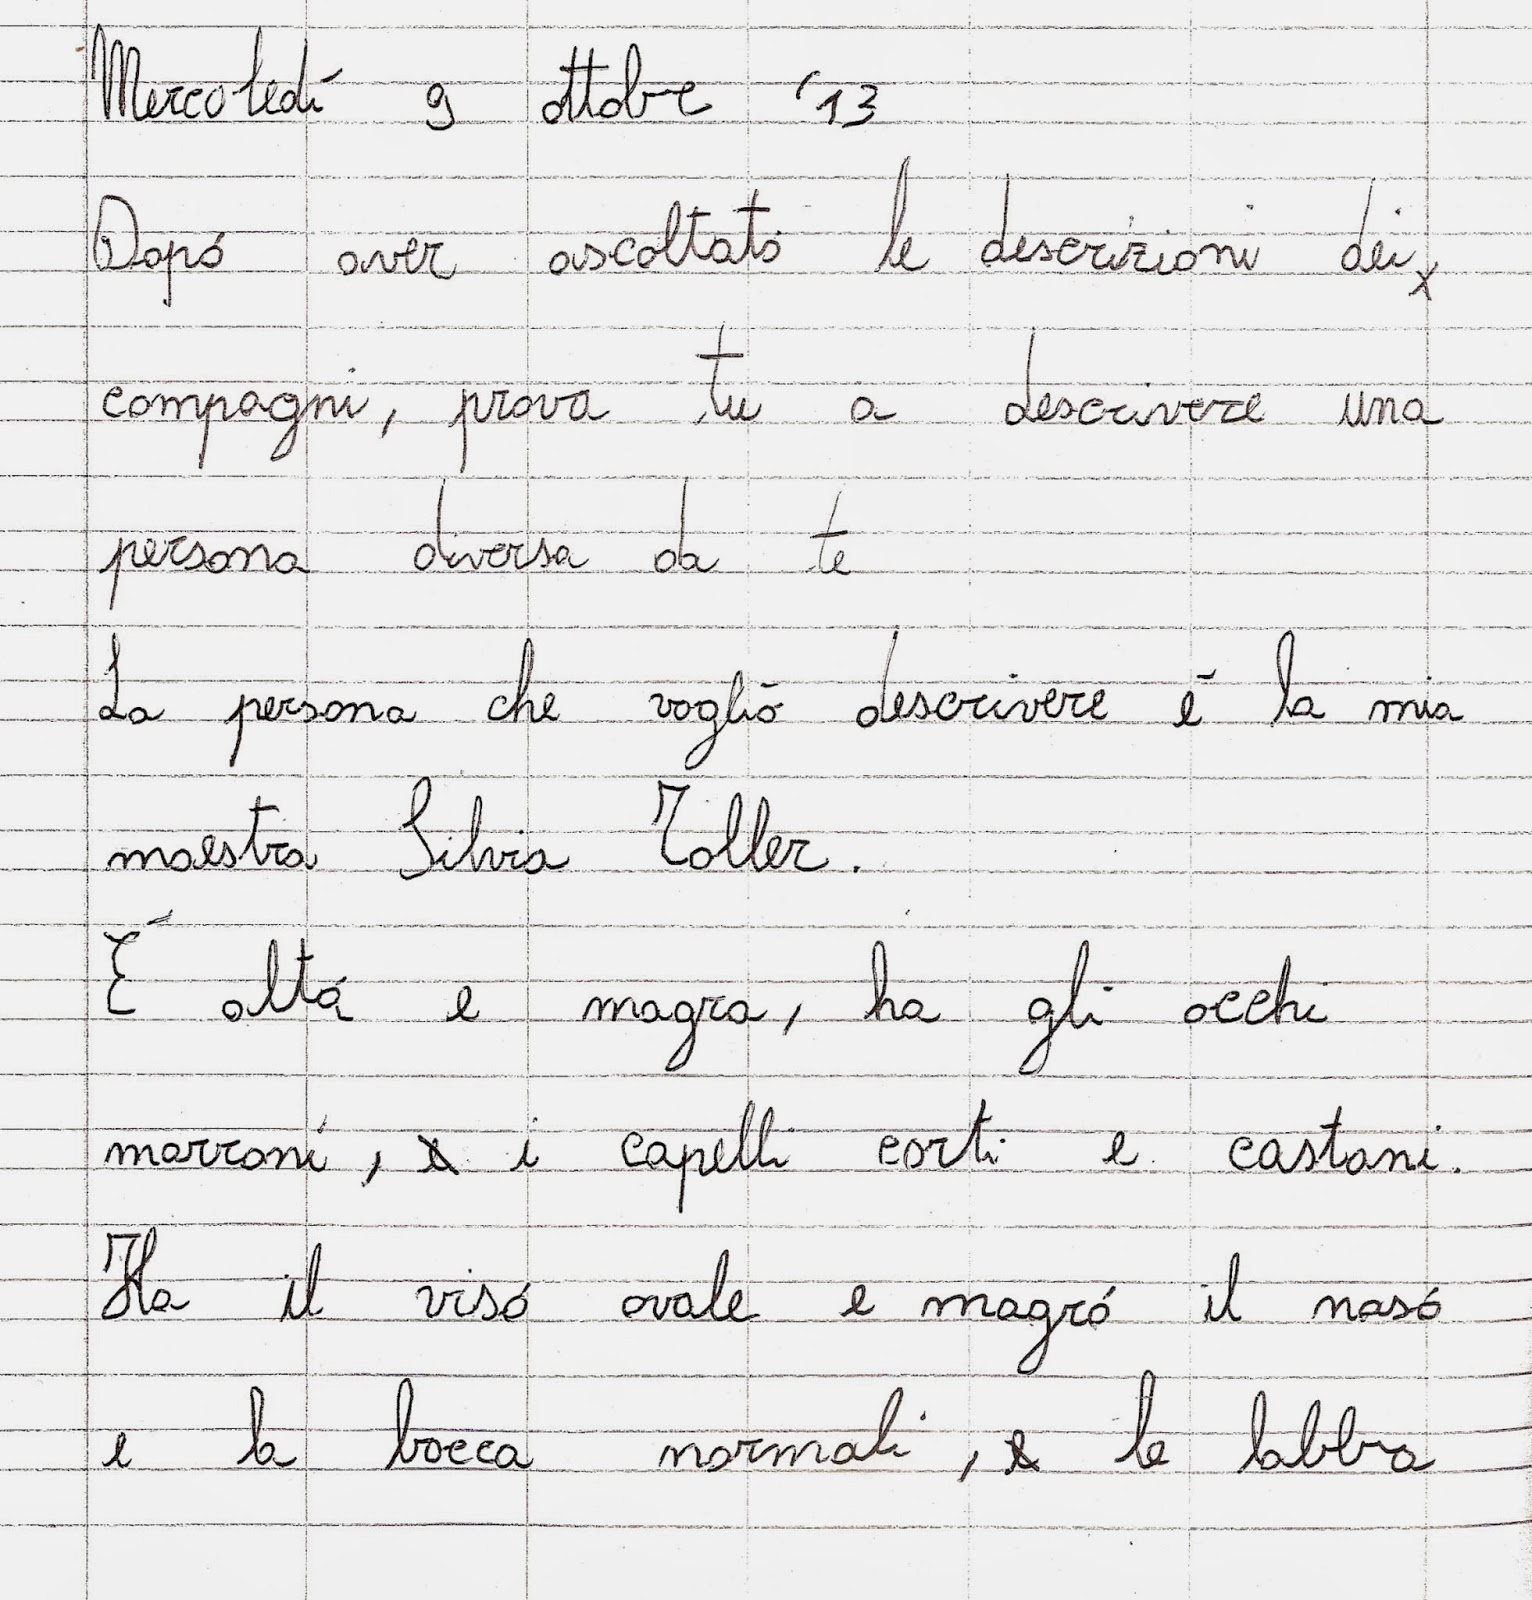 Mercoledì 9 ottobre '13
Dopo aver ascoltato le descrizioni dei
compagni, prova tu a descrivere una
persona diversa da te
La persona che voglio descrivere è la mia
maestra Silvia Toller.
È alta e magra, ha gli occhi
marroni, i capelli corti e castani.
Ha il viso ovale e magro il naso
e la bocca normali, le labbra